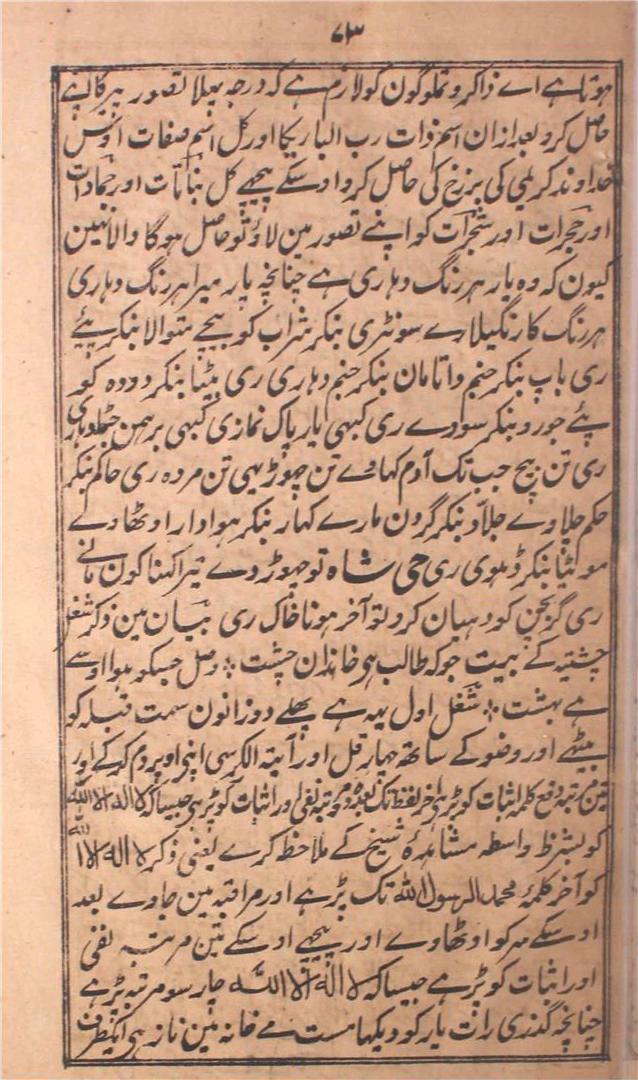 ۷۳
ہوتا ہے اے ذاکرو تملوگون کو لازم ہے کہ درجہ پہلا تصور پیر کا اپنے
حاصل کرو بعد ازان اسم ذات رب الباریکا اور کل اسم صفات اوس
خداوند کریمی کی برزخ کی حاصل کرو اوسکے پیچھے کل بناتات اور جمادات
اور حجرات اور شجرات کو اپنے تصور مین لاؤ تو حاصل ہوگا والا نہین
کیون کہ وہ یار ہر رنگ دہاری ہے چنانچہ یار میرا ہر رنگ دہاری
ہر رنگ کا رنگیلا رے سونٹری بنکر شراب کو بیچے متوالا بنکر پئے
ری باپ بنکر جنم واتا مان بنکر جنم دہاری ری بیٹا بنکر دودہ کو
پئے جورو بنکر سووے ری کبہی یار پاک نمازی کبہی برہمن
ری تن بیچ جب تک آدم کہاوے تن چہوڑ یہی تن مردہ ری حاکم بنکر
حکم چلاوے جلاد بنکر گردن مارے کہار بنکر ہوادار اوٹھاوے
بنکر ڈہووی ری حی شاہ تو چہوڑ دے تیرا کہنا کون مانے
ری گربچن کو دہیان کرو تو آخر ہونا خاک ری بیان مین ذکر شغل
چشتیہ کے بیت جو کہ طالب ہی خاندان چشت ؞ وصل جسکو ہوا اوسے
ہے بہشت ؞ شغل اول یہ ہے پہلے دوزانون سمت قبلہ کو
بیٹھے اور وضو کے ساتھ چہار قل اور آیتہ الکرسی اپنی اوپر دم کرکے اور
تین مرتبہ کلمہ اثبات کو پڑہی آخر لفظ تک بعدہ مرتبہ نفی اور اثبات کو پڑہی جیسا کہ لا الہ الا اللہ
کو بشرط واسطہ مشاہدۂ شیخ کے ملاحظہ کرے یعنی ذکر لا الہ الا اللہ
کو آخر کلمۂ محمد الرسول اللہ تک پڑہے اور مراقبہ مین جاوے بعد
اوسکے سر کو اوٹھاوے اور پیچھے اوسکے تین مرتبہ نفی
اور اثبات کو پڑہے جیسا کہ لا الہ الا اللہ چار سو مرتبہ پڑہے
چنانچہ گذری رات یار کو دیکہا مست مے خانہ مین نانہ ہی ایکطرف